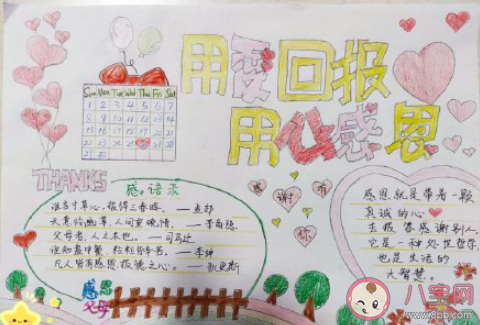 用爱回报
用心感恩
Sun Mon Tue Wed Thu Fri Sat
1 2 3 4 5 6 7
8 9 10 11 12 13 14
15 16 17 18 19 20 21
22 23 24 25 26 27 28
29 30
THANKS
感谢有你
感恩语录
谁言寸草心,报得三春晖。——孟郊
天意怜幽草,人间重晚晴。——李商隐
父母者,人之本也。——司马迁
谁知盘中餐,粒粒皆辛苦。——李绅
凡人皆有感恩报德之心。——狄更斯
感恩就是带着一颗
真诚的心
去报答感谢别人,
它是一种处世哲学,
也是生活的
大智慧。
感恩
父母
八宝网
www.8bb.com